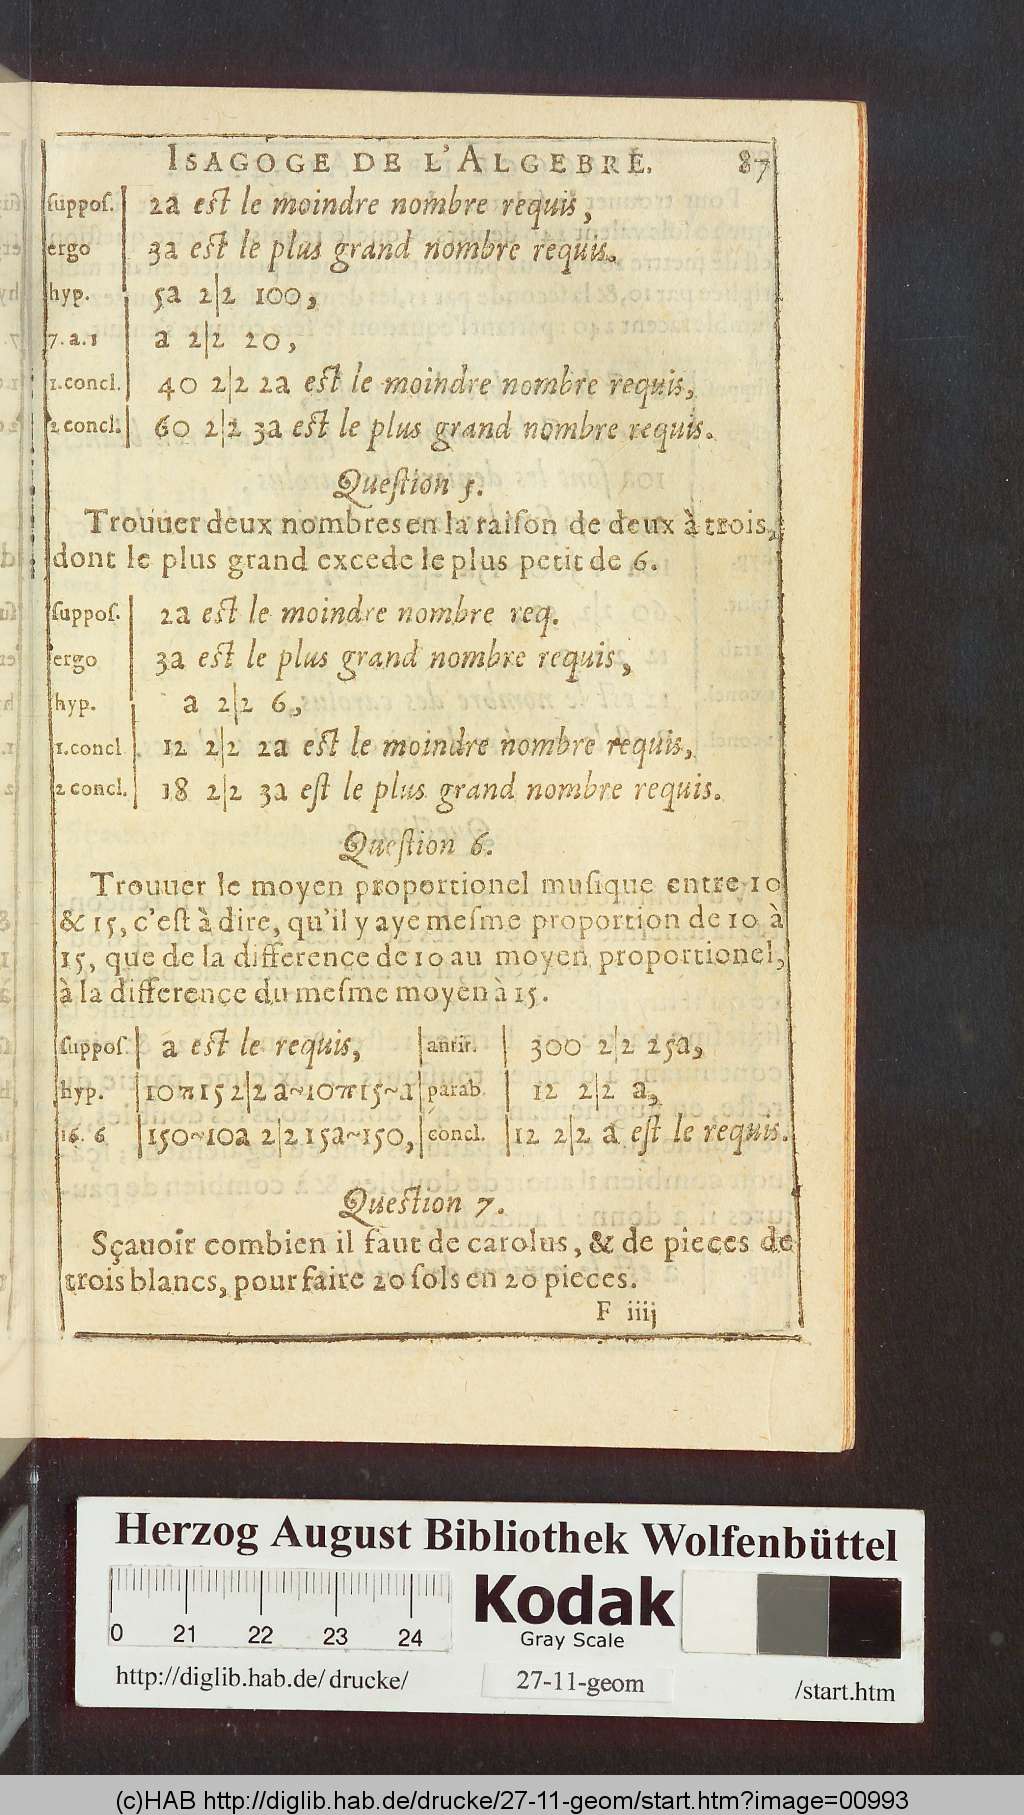 ISAGOGE DE L'ALGEBRE. 87
suppos. 2a est le moindre nombre requis,
ergo 3a est le plus grand nombre requis.
hyp. 5a 2|2 100,
7.a.1 a 2|2 20,
1.concl. 40 2|2 2a est le moindre nombre requis,
2 concl. 60 2|2 3a est le plus grand nombre requis.
Question 5.
Trouuer deux nombres en la raiſon de deux à trois,
dont le plus grand excede le plus petit de 6.
ſuppoſ. 2a est le moindre nombre req.
ergo 3a est le plus grand nombre requis,
hyp. a 2|2 6,
1.concl 12 2|2 2a est le moindre nombre requis,
2 concl. 18 2|2 3a eſt le plus grand nombre requis.
Queſtion 6.
Trouuer le moyen proportionel muſique entre 10
& 15, c'eſt à dire, qu'il y aye meſme proportion de 10 à
15, que de la difference de 10 au moyen proportionel,
à la difference du meſme moyen à 15.
ſuppoſ. a est le requis, antit. 300 2|2 25a,
hyp. 10 π 15 2|2 a~10 π 15~a parab. 12 2|2 a,
16. 6 150~10a 2|2 15a~150, concl. 12 2|2 a est le requis.
Question 7.
Sçauoir combien il faut de carolus, & de pieces de
trois blancs, pour faire 20 ſols en 20 pieces.
F iiij
Herzog August Bibliothek Wolfenbüttel
0 21 22 23 24
Kodak
Gray Scale
http://diglib.hab.de/drucke/ 27-11-geom /start.htm
(c)HAB http://diglib.hab.de/drucke/27-11-geom/start.htm?image=00993